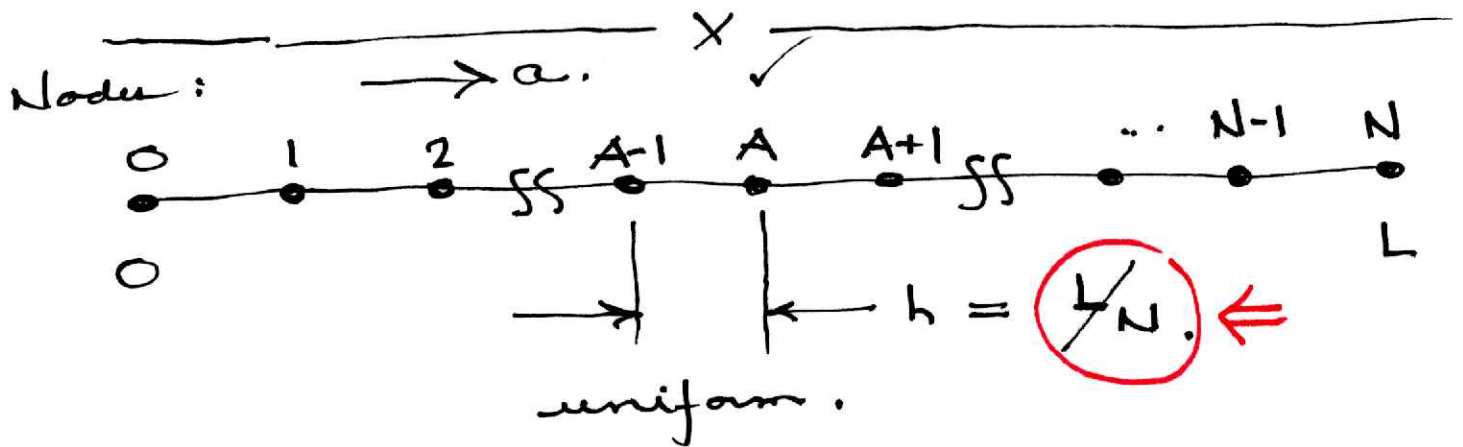 X
Nodes: → a. ✓
0 1 2 A-1 A A+1 ... N-1 N
0 L
h = L/N. ⇐
uniform.